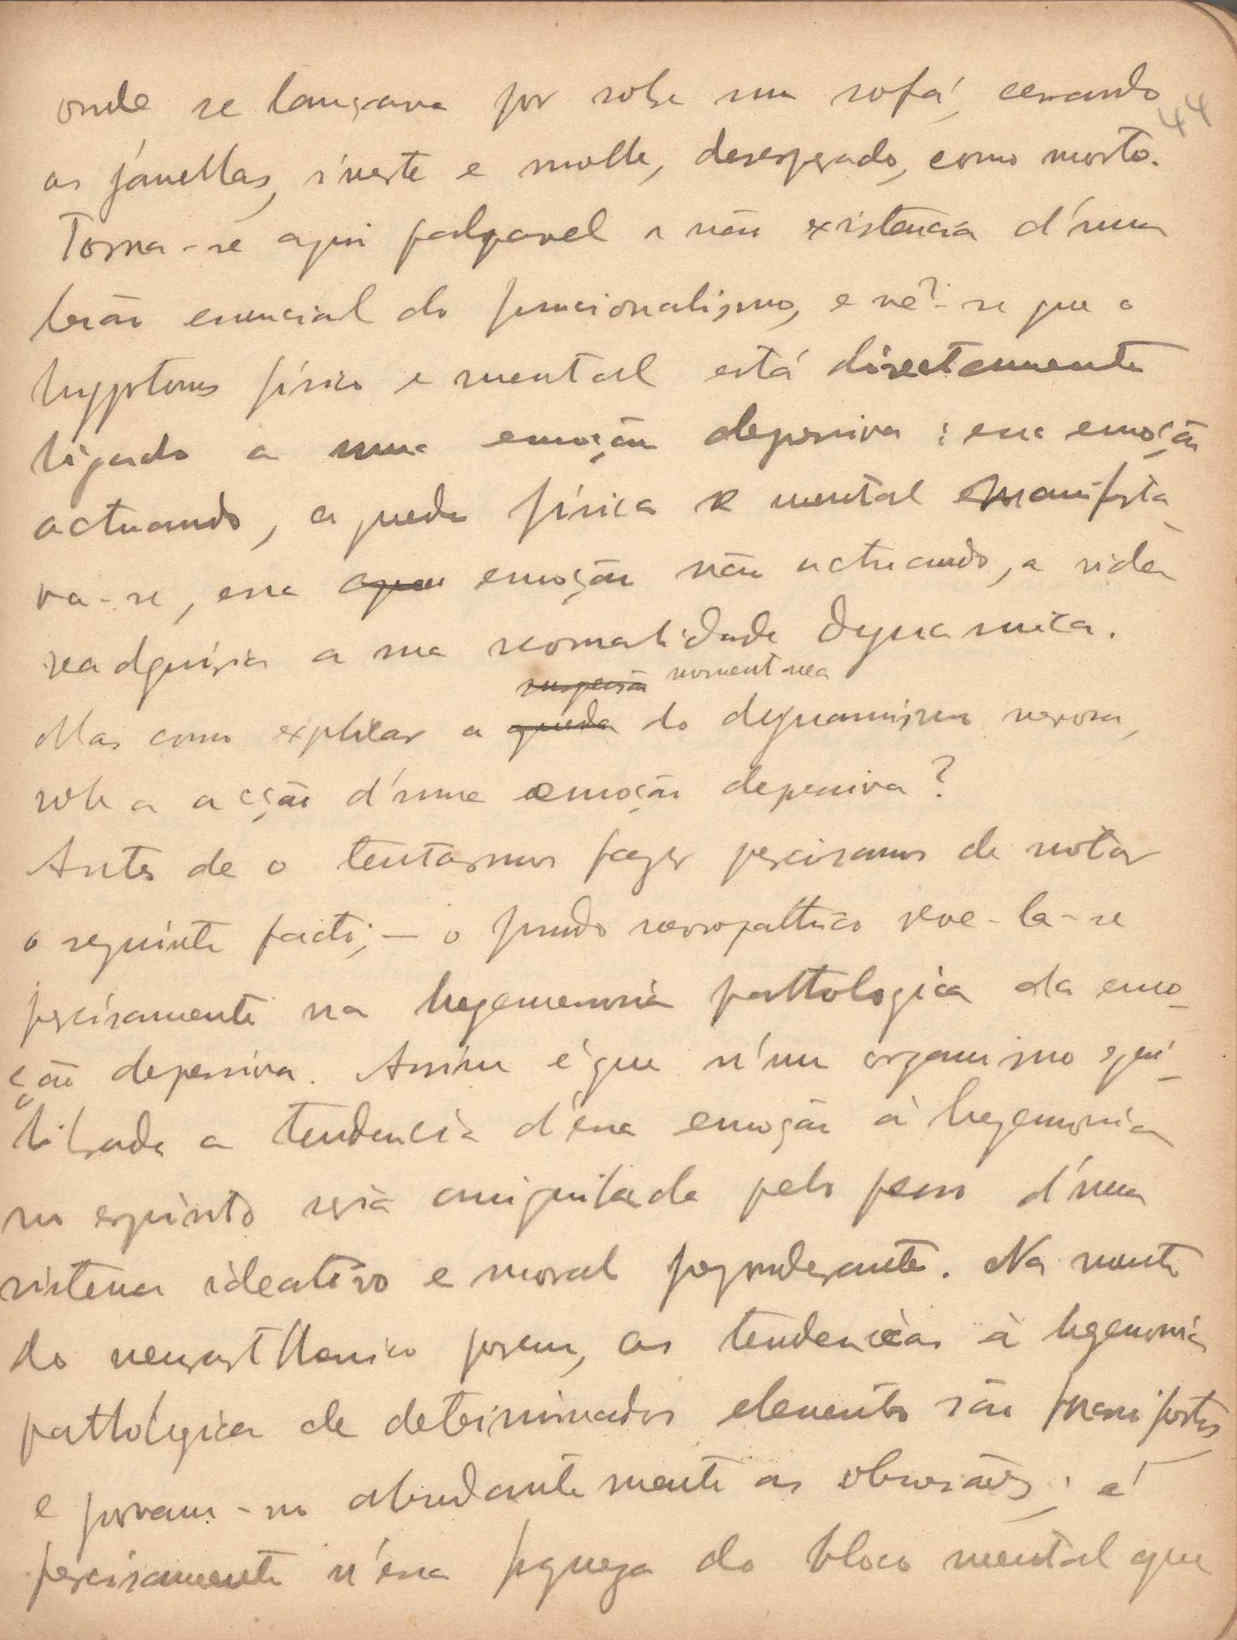 onde se lançava por sobre um sofá, cerrando
44
as janellas, inerte e molle, desesperado, como morto.
Torna-se aqui palpavel a não existencia d'uma
lesão essencial do funcionalismo, e vê-se que o
hypotonus físico e mental está directamente
ligado a uma emoção depressiva: essa emoção
actuando, a queda física e mental manifesta
va-se, essa emoção não actuando, a vida
readquiria a sua normalidade dynamica.
suspensão momentanea
Mas como explicar a queda do dynamismo nervoso,
sob a acção d'uma emoção depressiva?
Antes de o tentarmos fazer precisamos de notar
o seguinte facto; — o fundo nevropathico reve-la-se
precisamente na hegemonia pathologica da emo-
ção depressiva. Assim é que n'um organismo equi-
librado a tendencia d'essa emoção à hegemonia
no espirito seria aniquilada pelo peso d'um
sistema ideativo e moral preponderante. Na mente
do neurasthenico porem, as tendencias à hegemonia
pathologica de determinados elementos são manifestas
e provam-no abundantemente as obsessões; é
precisamente n'essa fraqueza do bloco mental que